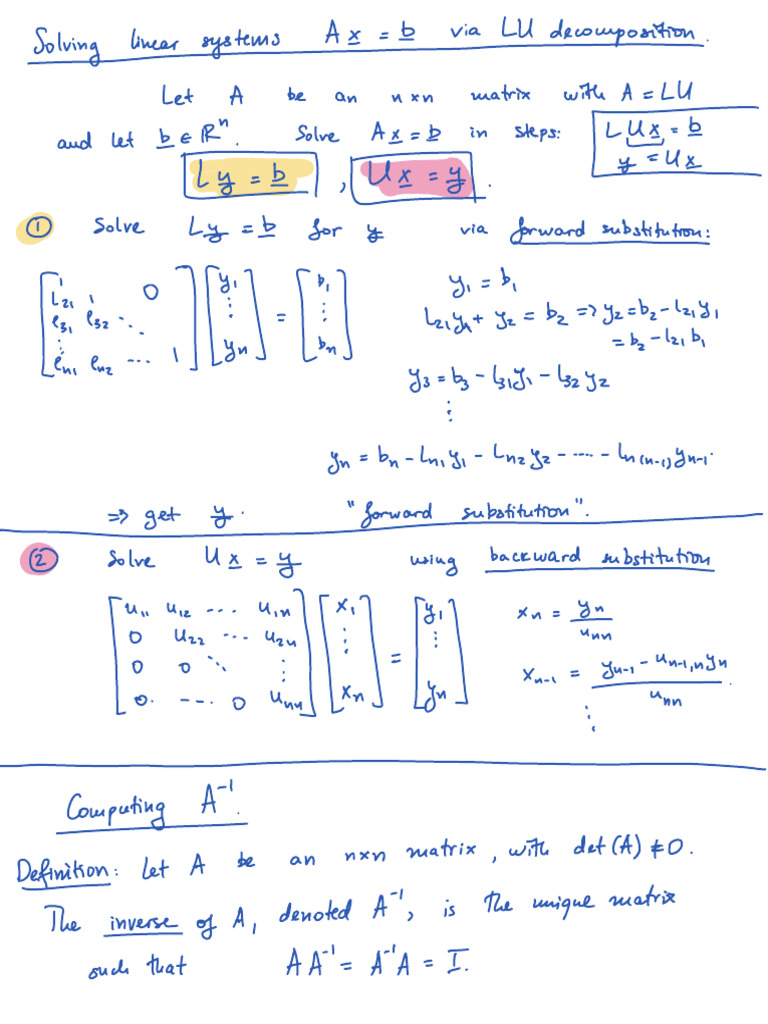 Solving linear systems A x = b via LU decomposition.
Let A be an n×n matrix with A = LU
and let b ∈ ℝⁿ. Solve A x = b in steps:
L U x = b
y = U x
L y = b , U x = y .
① Solve L y = b for y via forward substitution:
[1 0; L21 1; l31 l32 ⋱; ⋮; ln1 ln2 ... 1] [y1 ⋮ yn] = [b1 ⋮ bn]
y1 = b1
L21 y1 + y2 = b2 => y2 = b2 - L21 y1
= b2 - L21 b1
y3 = b3 - L31 y1 - L32 y2
⋮
yn = bn - Ln1 y1 - Ln2 y2 - ..... - Ln(n-1) yn-1.
=> get y. "forward substitution".
② Solve U x = y using backward substitution
[u11 u12 ... u1n; 0 u22 ... u2n; 0 0 ⋱ ⋮; 0. ... 0 unn] [x1 ⋮ xn] = [y1 ⋮ yn]
xn = yn / unn
xn-1 = (yn-1 - un-1,n yn) / unn .
⋮
Computing A⁻¹.
Definition: Let A be an n×n matrix, with det(A) ≠ 0.
The inverse of A, denoted A⁻¹, is the unique matrix
such that A A⁻¹ = A⁻¹ A = I.